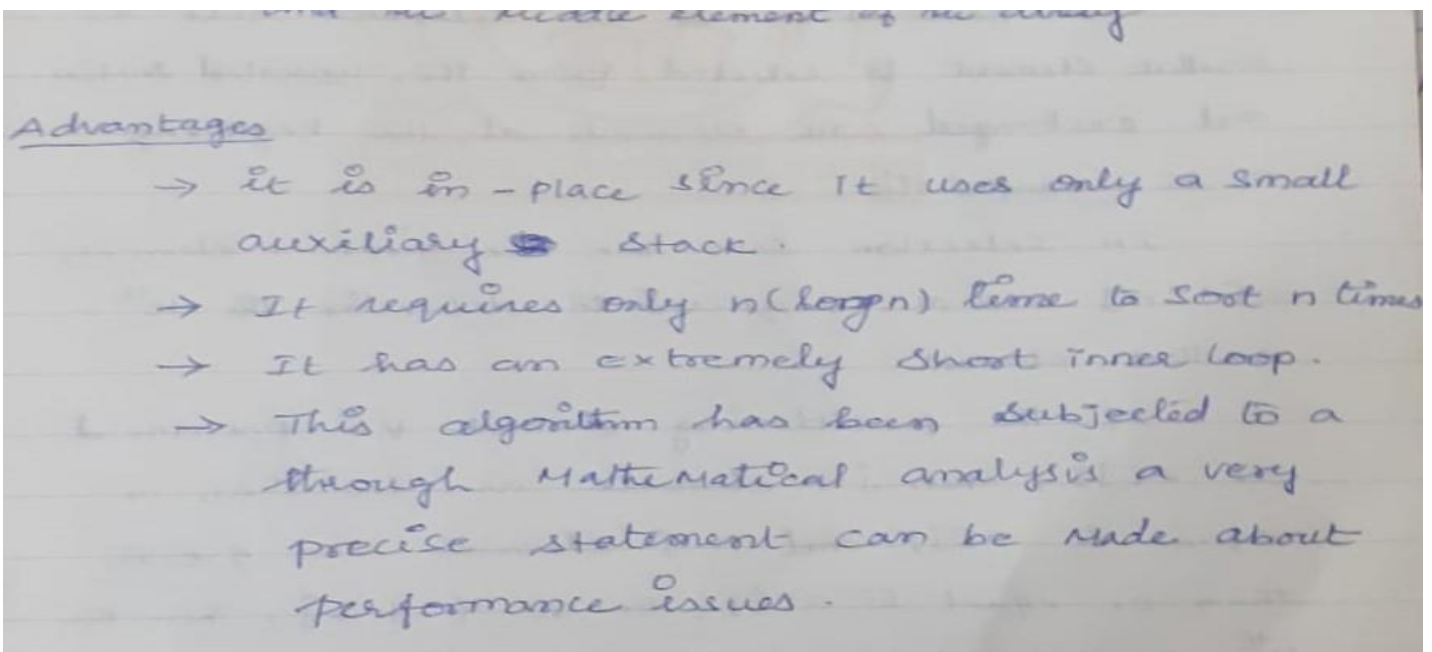 middle element of the array
Advantages
→ it is in-place since It uses only a small
auxiliary stack.
→ It requires only n(logn) time to sort n times
→ It has an extremely short inner loop.
→ This algorithm has been subjected to a
through Mathematical analysis a very
precise statement can be made about
performance issues.